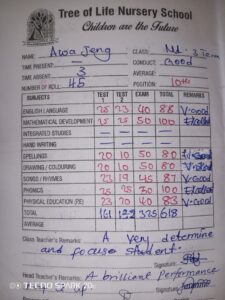 Tree of Life Nursery School
Children are the Future
NAME: Awa Jeng CLASS: N1 - 3
TIME PRESENT — CONDUCT: Good
TIME ABSENT 3 AVERAGE
NUMBER OF ROLL: 45 POSITION: 10th
SUBJECTS TEST TEST EXAM TOTAL REMARKS
ENGLISH LANGUAGE 25 23 40 88 V-Good
MATHEMATICAL DEVELOPMENT 25 25 50 100
INTEGRATED STUDIES —
HAND WRITING —
SPELLINGS 20 10 50 80
DRAWING / COLOURING 20 10 50 80
SONGS / RHYMES 23 19 45 87 V-Good
PHONICS 25 25 50 100
PHYSICAL EDUCATION 23 20 40 83 V-Good
TOTAL 325 618
AVERAGE
Class Teacher's Remarks: A very determine
and focuse student.
Signature
Head Teacher's Remarks: A brilliant performance
Signature
TECNO SPARK